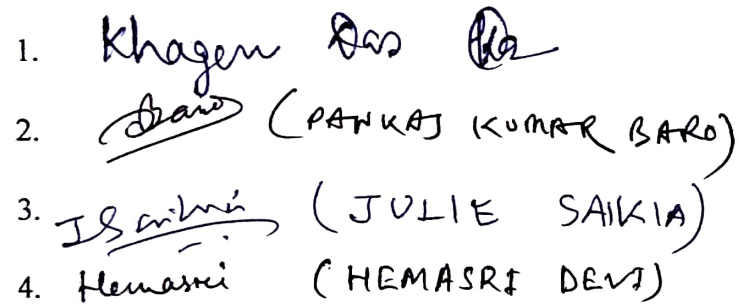 1. Khagen Das
2. Baro (PANKAJ KUMAR BARO)
3. JSaikia (JULIE SAIKIA)
4. Hemasri (HEMASRI DEVI)